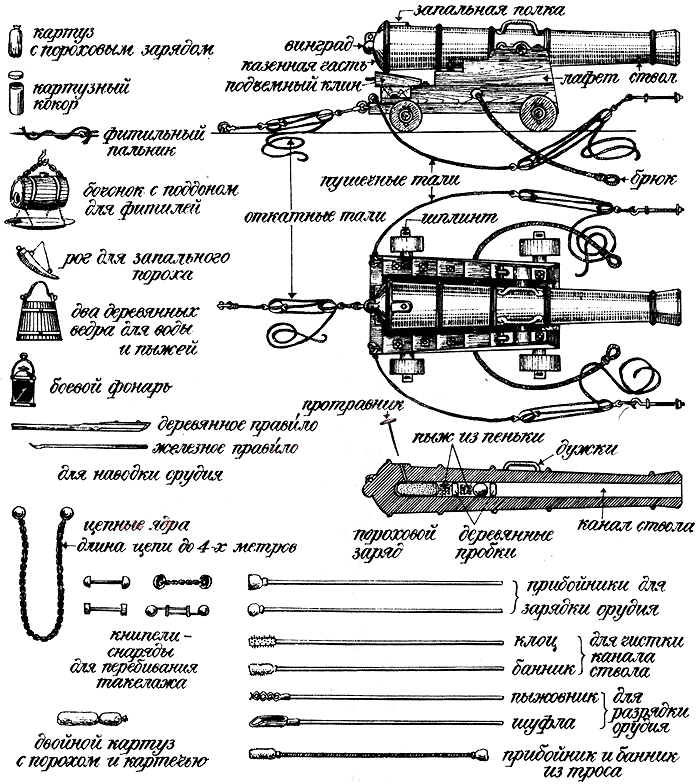 запальная полка
картуз
с пороховым зарядом
винград
казенная часть
подъемный клин
лафет
ствол
картузный
кокор
фитильный
пальник
бочонок с поддоном
для фитилей
пушечные тали
брюк
откатные тали
шплинт
рог для запального
пороха
два деревянных
ведра для воды
и пыжей
боевой фонарь
протравник
деревянное прави́ло
железное прави́ло
для наводки орудия
пыж из пеньки
дужки
пороховой
заряд
деревянные
пробки
канал ствола
цепные ядра
длина цепи до 4-х метров
книпели-
снаряды
для перебивания
такелажа
прибойники для
зарядки орудия
клоц
банник
для чистки
канала
ствола
пыжовник
шуфла
для
разрядки
орудия
двойной картуз
с порохом и картечью
прибойник и банник
из троса